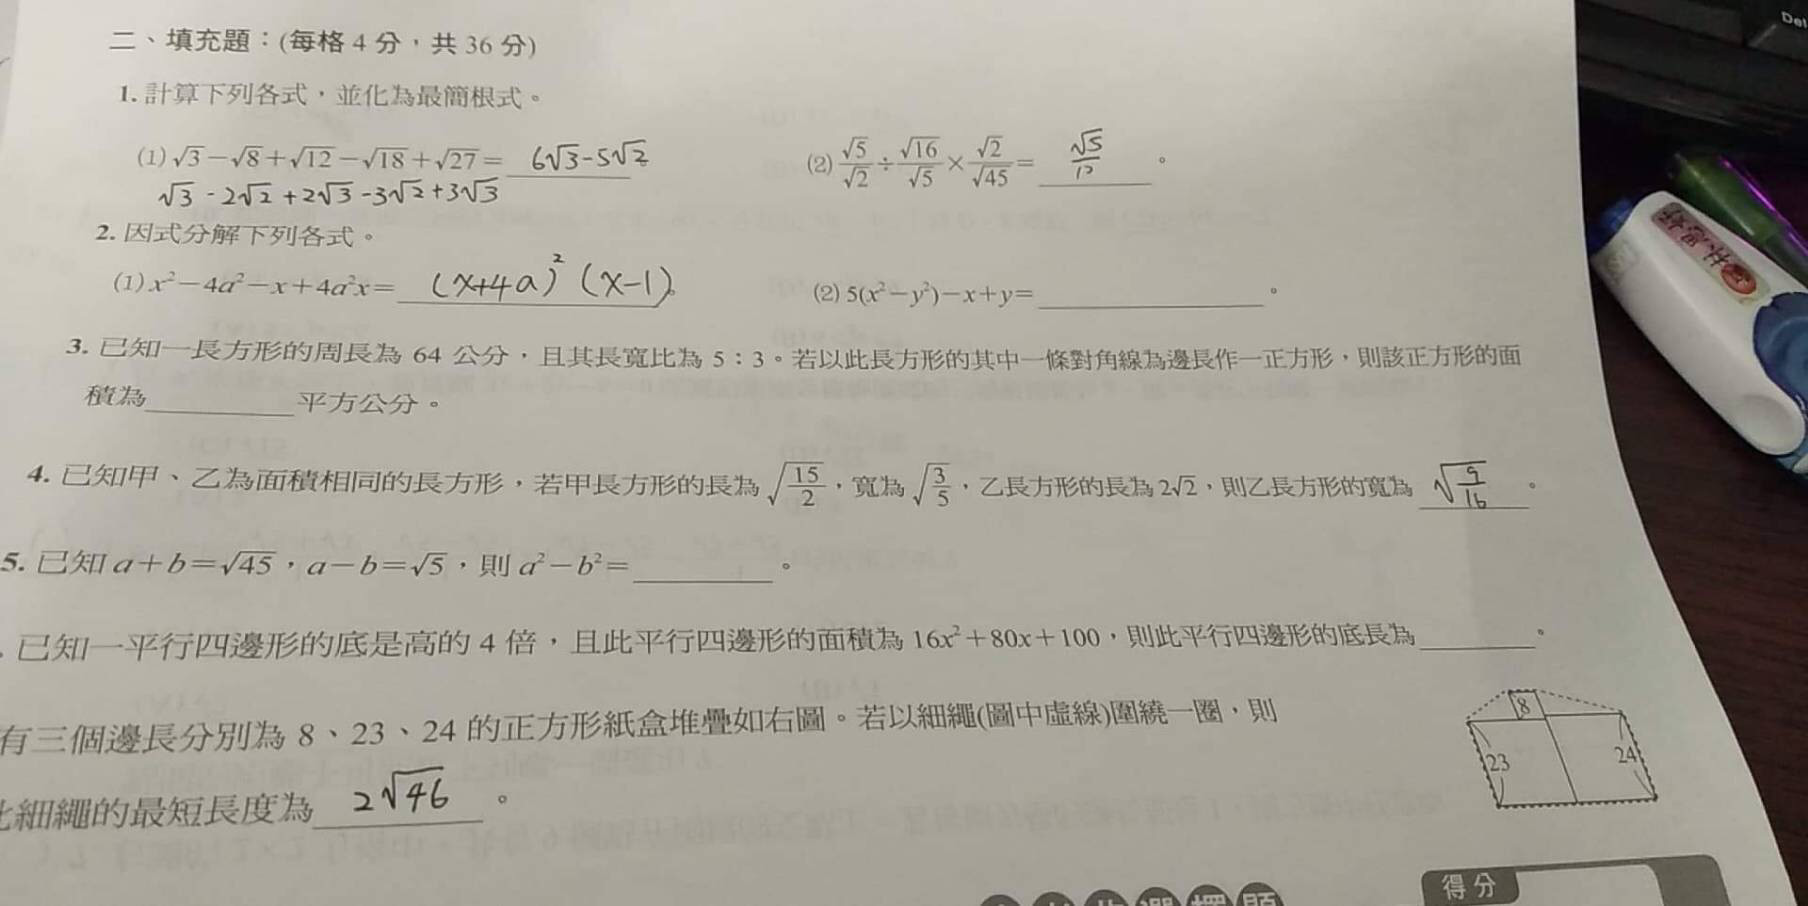 二、填充題：(每格 4 分，共 36 分)
1. 計算下列各式，並化為最簡根式。
(1) √3－√8＋√12－√18＋√27＝ 6√3-5√2 。 (2) √5/√2 ÷ √16/√5 × √2/√45 ＝ √5/12 。
√3 - 2√2 + 2√3 - 3√2 + 3√3
2. 因式分解下列各式。
(1) x²－4a²－x＋4a²x＝ (x+4a)² (x-1) 。 (2) 5(x²－y²)－x＋y＝ 。
3. 已知一長方形的周長為 64 公分，且其長寬比為 5：3。若以此長方形的其中一條對角線為邊長作一正方形，則該正方形的面
積為 平方公分。
4. 已知甲、乙為面積相同的長方形，若甲長方形的長為 √(15/2)，寬為 √(3/5)，乙長方形的長為 2√2，則乙長方形的寬為 √(9/16) 。
5. 已知 a＋b＝√45，a－b＝√5，則 a²－b²＝ 。
已知一平行四邊形的底是高的 4 倍，且此平行四邊形的面積為 16x²＋80x＋100，則此平行四邊形的底長為 。
有三個邊長分別為 8、23、24 的正方形紙盒堆疊如右圖。若以細繩(圖中虛線)圍繞一圈，則
細繩的最短長度為 2√46 。
8
23
24
得分
Del